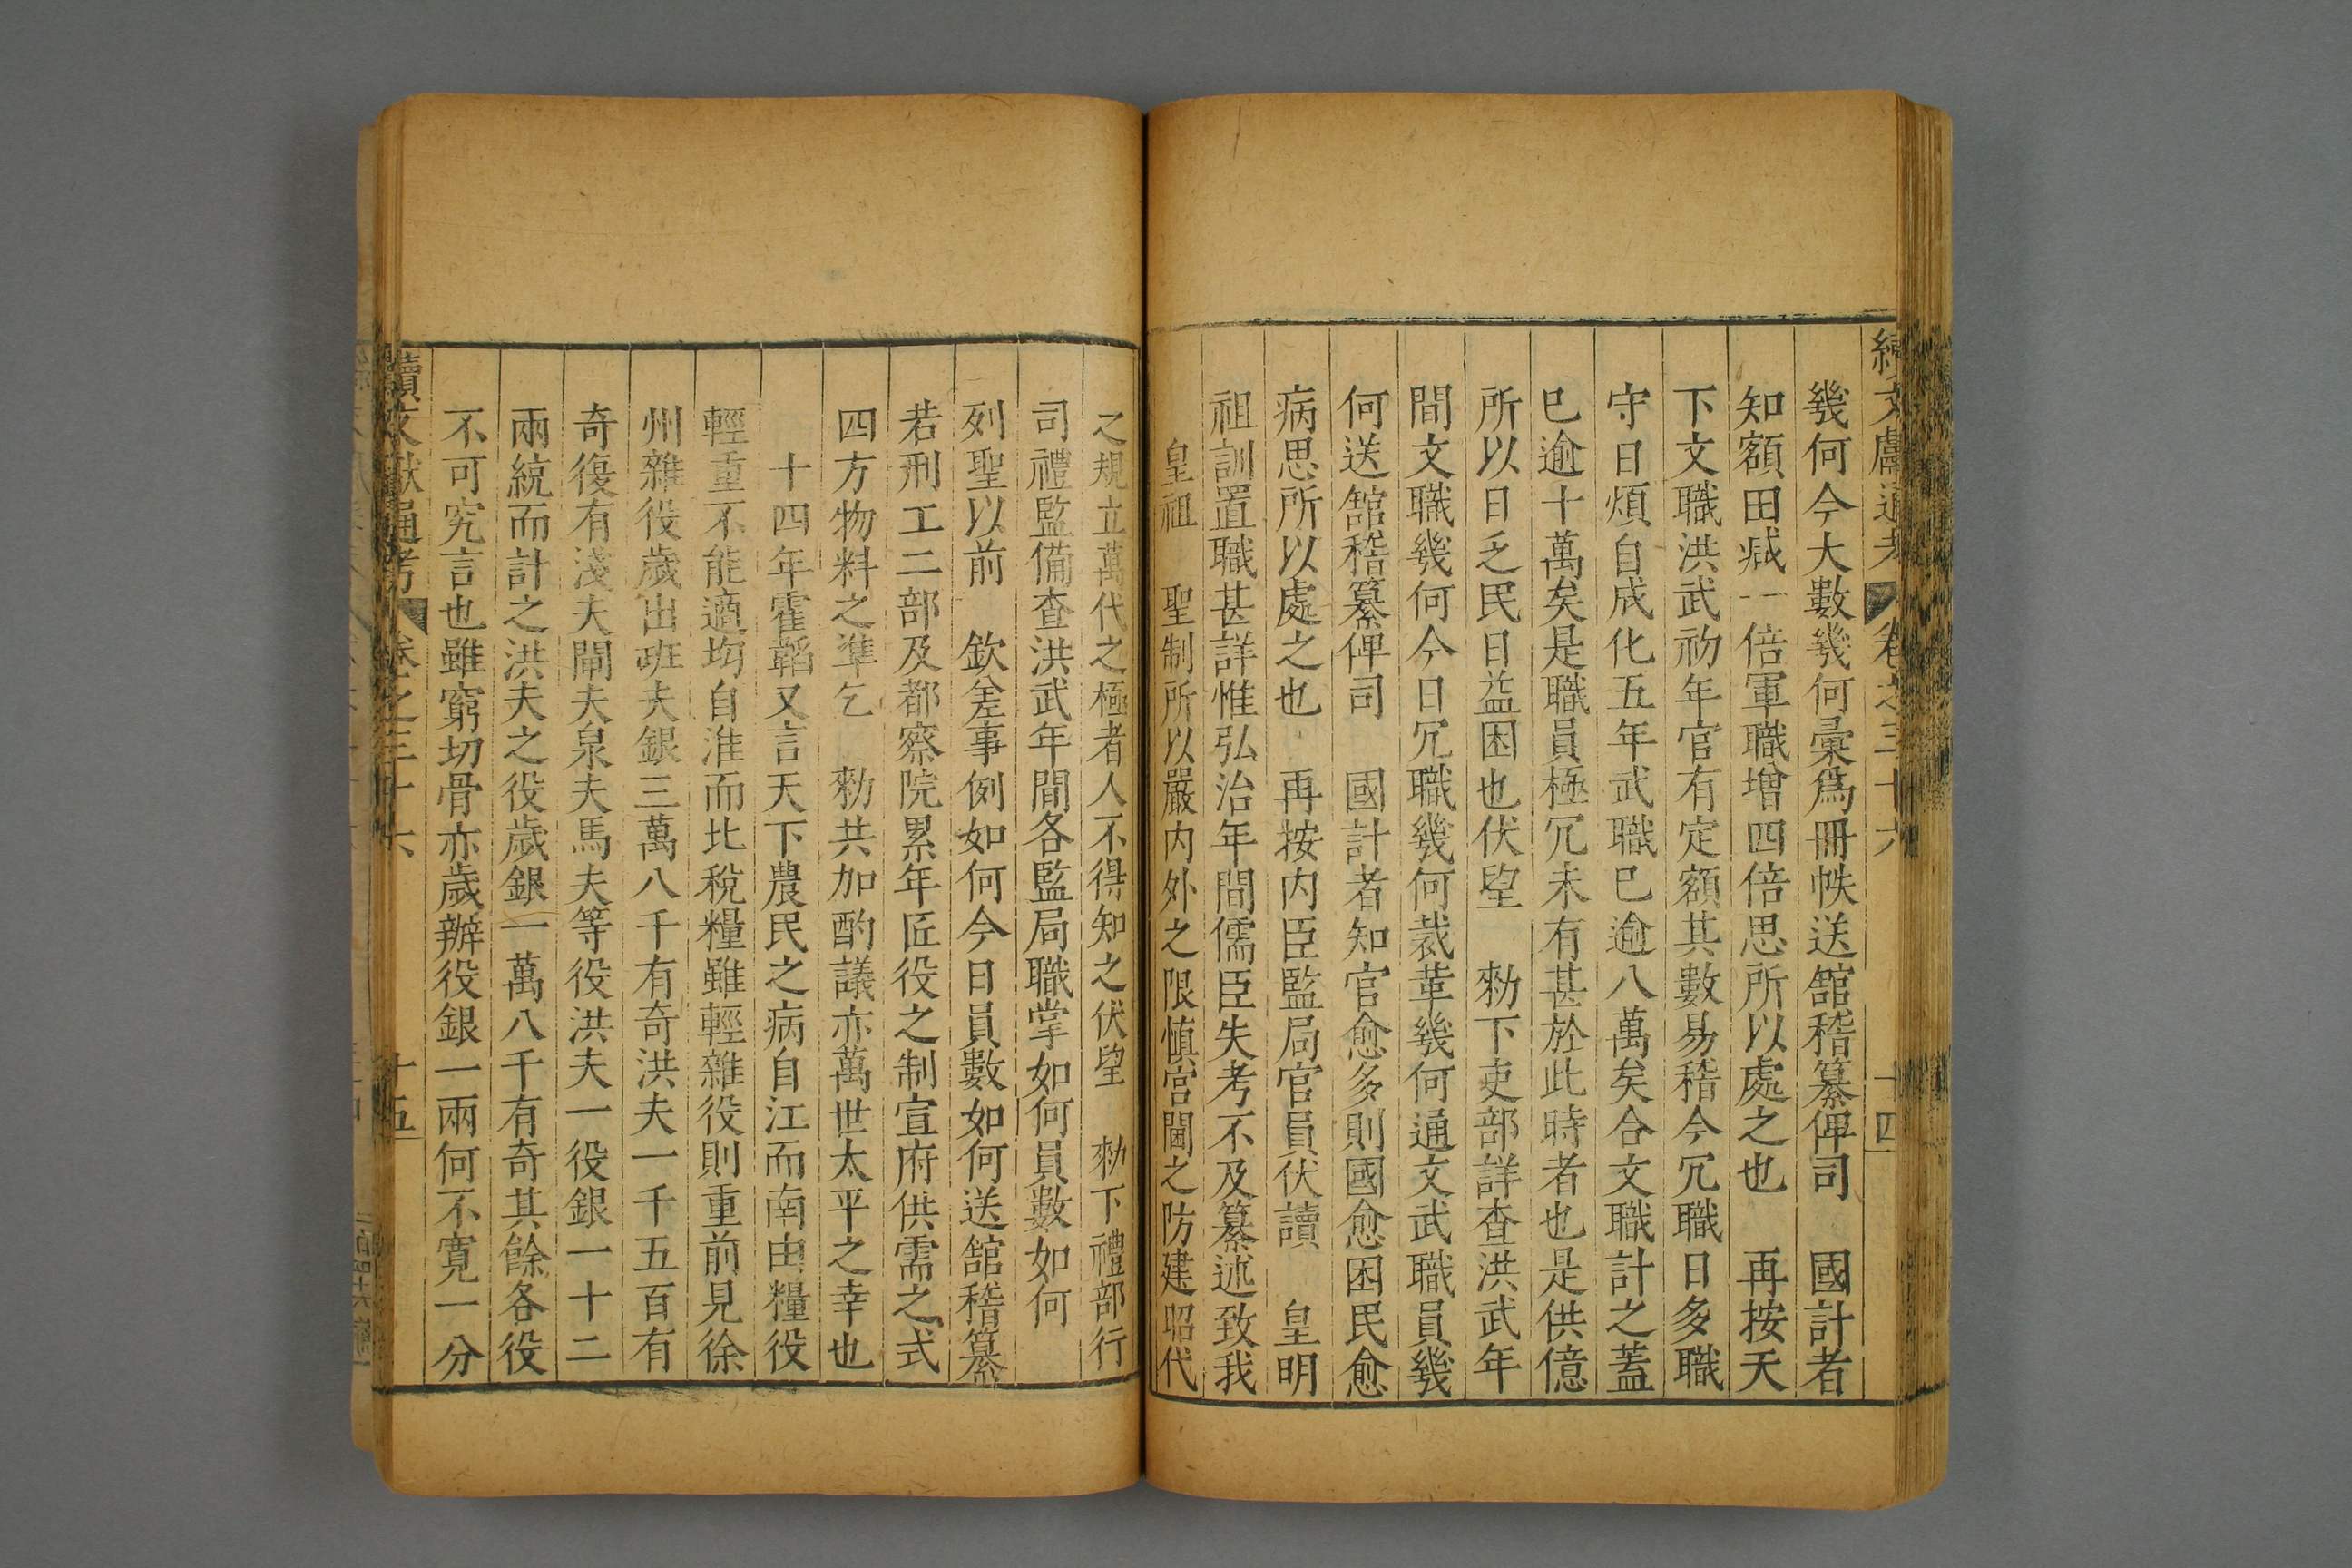 續文獻通考 卷之三十六 十四
幾何今大數幾何彙爲冊帙送舘稽纂俾司 國計者
知額田減一倍軍職增四倍思所以處之也 再按天
下文職洪武初年官有定額其數易稽今冗職日多職
守日煩自成化五年武職已逾八萬矣合文職計之蓋
已逾十萬矣是職員極冗未有甚於此時者也是供億
所以日乏民日益困也伏望 勑下吏部詳查洪武年
間文職幾何今日冗職幾何裁革幾何通文武職員幾
何送舘稽纂俾司 國計者知官愈多則國愈困民愈
病思所以處之也 再按内臣監局官員伏讀 皇明
祖訓置職甚詳惟弘治年間儒臣失考不及纂述致我
皇祖 聖制所以嚴内外之限慎宮闥之防建昭代
之規立萬代之極者人不得知之伏望 勑下禮部行
司禮監備查洪武年間各監局職掌如何員數如何
列聖以前 欽差事例如何今日員數如何送舘稽纂
若刑工二部及都察院累年匠役之制宣府供需之式
四方物料之準乞 勑共加酌議亦萬世太平之幸也
十四年霍韜又言天下農民之病自江而南由糧役
輕重不能適均自淮而北稅糧雖輕雜役則重前見徐
州雜役歲出班夫銀三萬八千有奇洪夫一千五百有
奇復有淺夫閘夫泉夫馬夫等役洪夫一役銀一十二
兩統而計之洪夫之役歲銀一萬八千有奇其餘各役
不可究言也雖窮切骨亦歲辦役銀一兩何不寛一分
續文獻通考 卷之三十六 十五